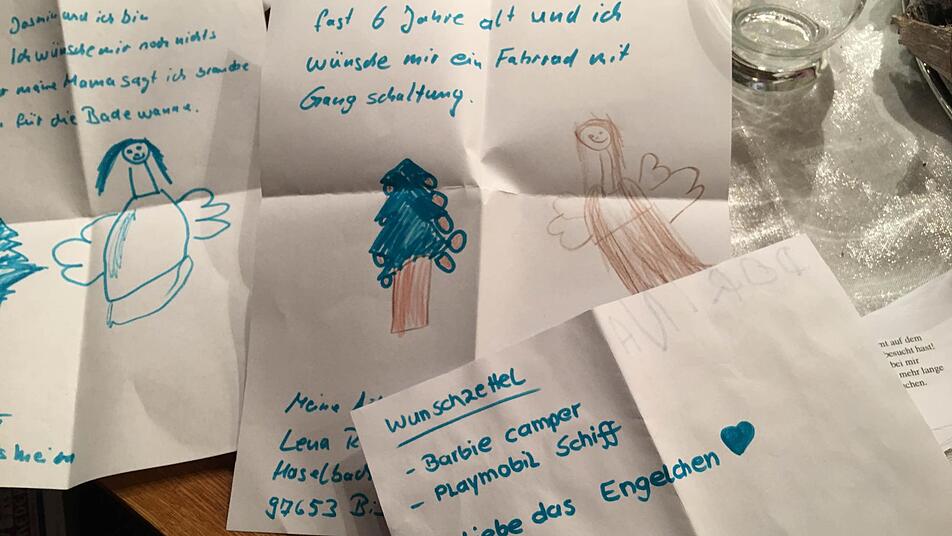 Jasmin und ich bin
Ich wünsche mir noch nichts
meine Mama sagt ich brauche
für die Badewanne.
fast 6 Jahre alt und ich
wünsche mir ein Fahrrad mit
Gangschaltung.
Meine
Lena R
Haselbach
97653 Bi
Wunschzettel
- Barbie camper
- Playmobil Schiff
liebe das Engelchen
nt auf dem
besucht hast!
bei mir
mehr lange
chen.